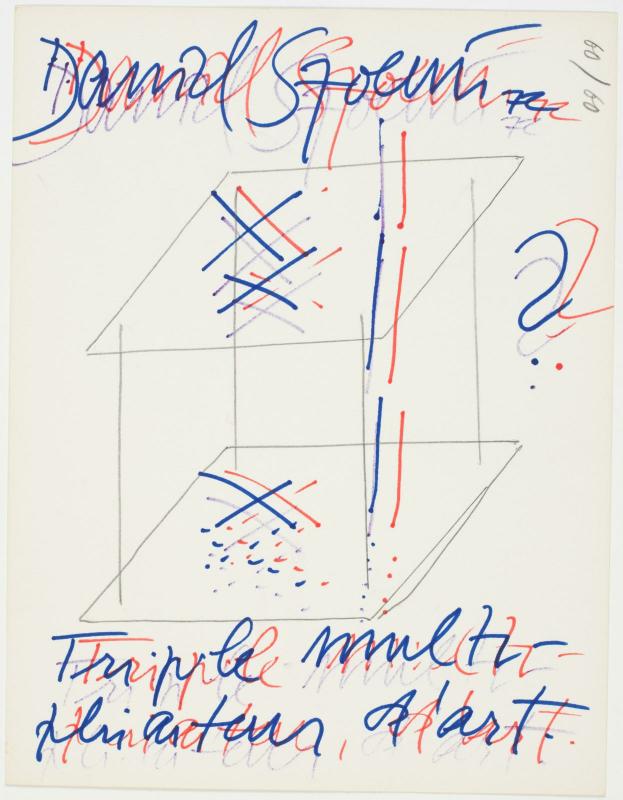 Daniel Spoerri 72
60/60
?
Tripple multi-
plicateur, d'art.